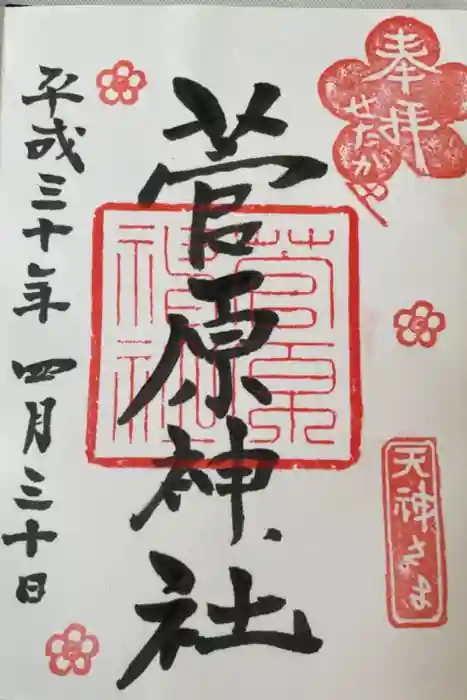 奉拝
せたがや
天神さま
菅原神社
菅原
神社
平成三十年 四月三十日